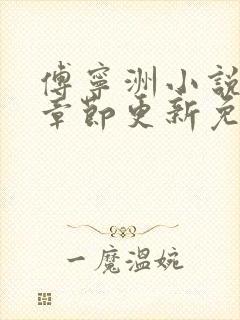 傅寧洲小説
章節更新免
一魔溫婉